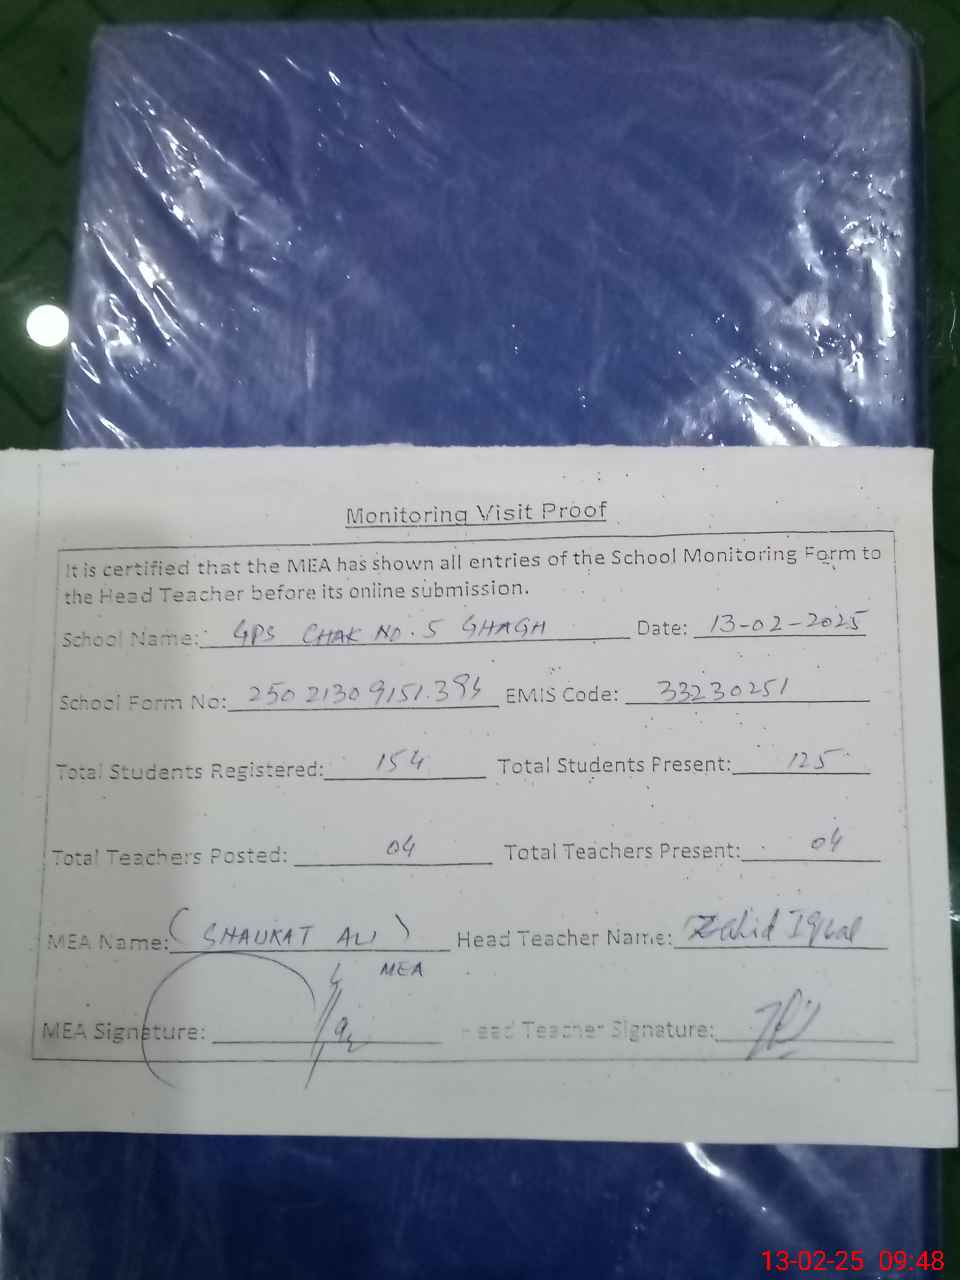 Monitoring Visit Proof
It is certified that the MEA has shown all entries of the School Monitoring Form to
the Head Teacher before its online submission.
School Name: GPS CHAK NO. 5 GHAGH Date: 13-02-2025
School Form No: EMIS Code: 33230251
Total Students Registered: 154 Total Students Present: 125
Total Teachers Posted: 04 Total Teachers Present: 04
MEA Name: (SHAUKAT ALI) Head Teacher Name: Zahid Iqbal
MEA
MEA Signature: Head Teacher Signature:
13-02-25 09:48